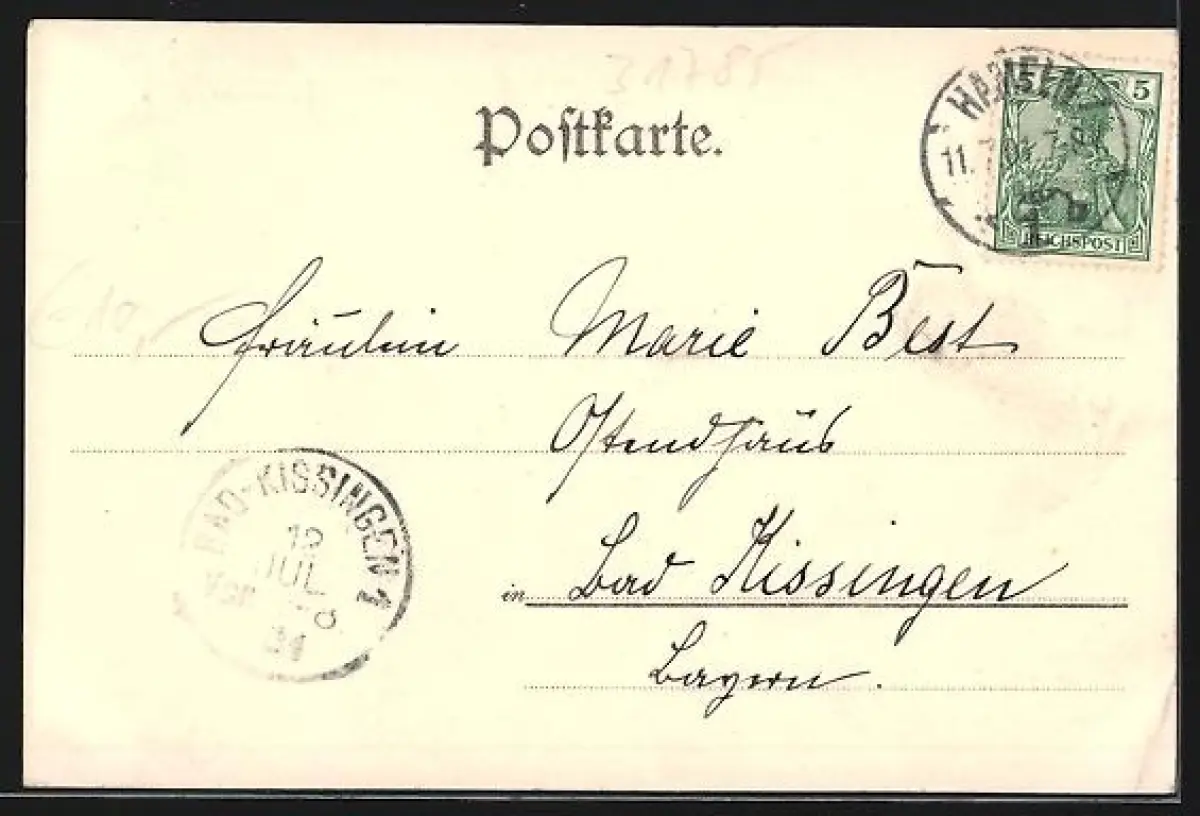 31785
Postkarte.
HAMELN
11. 7. 01
5
REICHSPOST
Fräulein Marie Best
Ostendhaus
in Bad Kissingen
Bayern.
BAD-KISSINGEN 1
12
JUL